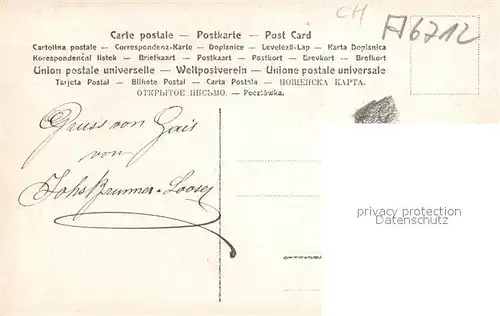 CH
A6712
Carte postale — Postkarte — Post Card
Cartolina postale — Correspondenz-Karte — Dopisnice — Levelező-Lap — Karta Dopisnica
Korespondenční listek — Briefkaart — Postkaart — Postkort — Brevkort — Brefkort
Union postale universelle — Weltpostverein — Unione postale universale
Tarjeta Postal — Bilhete Postal — Carta Postala — ПОЩЕНСКА КАРТА.
ОТКРЫТОЕ ПИСЬМО. — Pocztówka.
Gruss von Gais
von
Johs Brunner-Looser
privacy protection
veikkos.com